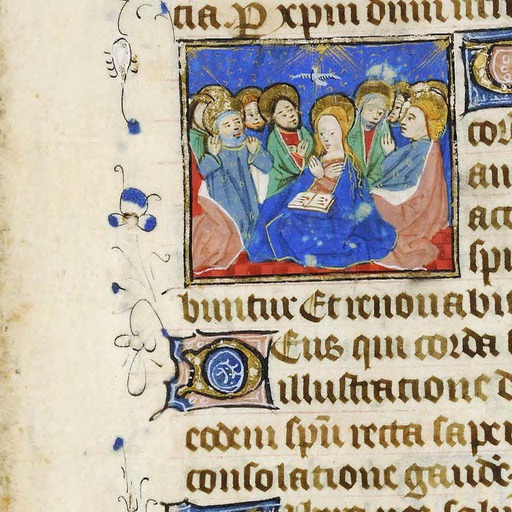 tia. P xpm dnm
cor
au
acc
spi
buntur Et renouabi
Deus qui corda
illustratione
eodem spũ recta sape
consolatione gaude